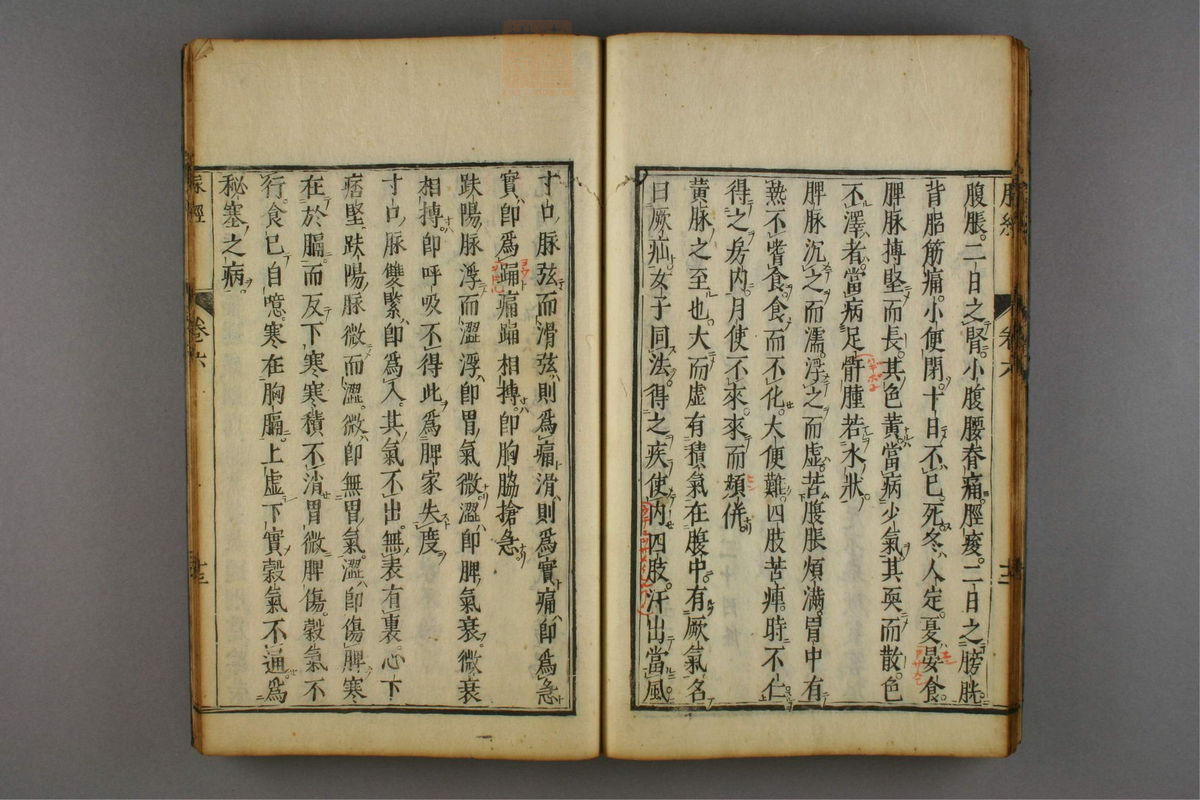 脉經
卷六
腹脹。二日之腎。小腹腰脊痛。脛痠。二日之膀胱。
背䏚筋痛。小便閉。十日不已。死。冬人定。夏晏食。
脾脉搏堅而長。其色黃。當病少氣。其耎而散。色
不澤者。當病足䯒腫若水狀。
脾脉沉之而濡。浮之而虛。苦腹脹煩滿。胃中有
熱。不嗜食。食而不化。大便難。四肢苦痺。時不仁。
得之房內。月使不來。來而頻併。
黃脉之至也。大而虛。有積氣在腹中。有厥氣。名
曰厥疝。女子同法。得之疾使內。四肢汗出當風
寸口脉弦而滑。弦則爲痛。滑則爲實。痛即爲急
實即爲踊。痛踊相搏。即胸脇搶急
趺陽脉浮而澀。浮即胃氣微。澀即脾氣衰。微衰
相搏。即呼吸不得。此爲脾家失度
寸口脉雙緊。即爲入。其氣不出。無表有裏。心下
痞堅。趺陽脉微而澀。微即無胃氣。澀即傷脾。寒
在於膈。而反下寒。寒積不消。胃微脾傷。穀氣不
行。食已自噫。寒在胸膈。上虛下實。穀氣不通。爲
秘塞之病。
脉經
卷六
十三